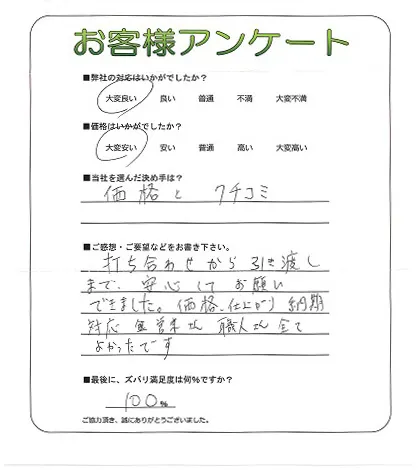 お客様アンケート
■弊社の対応はいかがでしたか？
大変良い 良い 普通 不満 大変不満
■価格はいかがでしたか？
大変安い 安い 普通 高い 大変高い
■当社を選んだ決め手は？
価格と クチコミ
■ご感想・ご要望などをお書き下さい。
打ち合わせから引き渡し
まで、安心してお願い
できました。価格、仕上がり 納期
対応 営業さん 職人さん全て
よかったです
■最後に、ズバリ満足度は何%ですか？
100%
ご協力頂き、誠にありがとうございました。